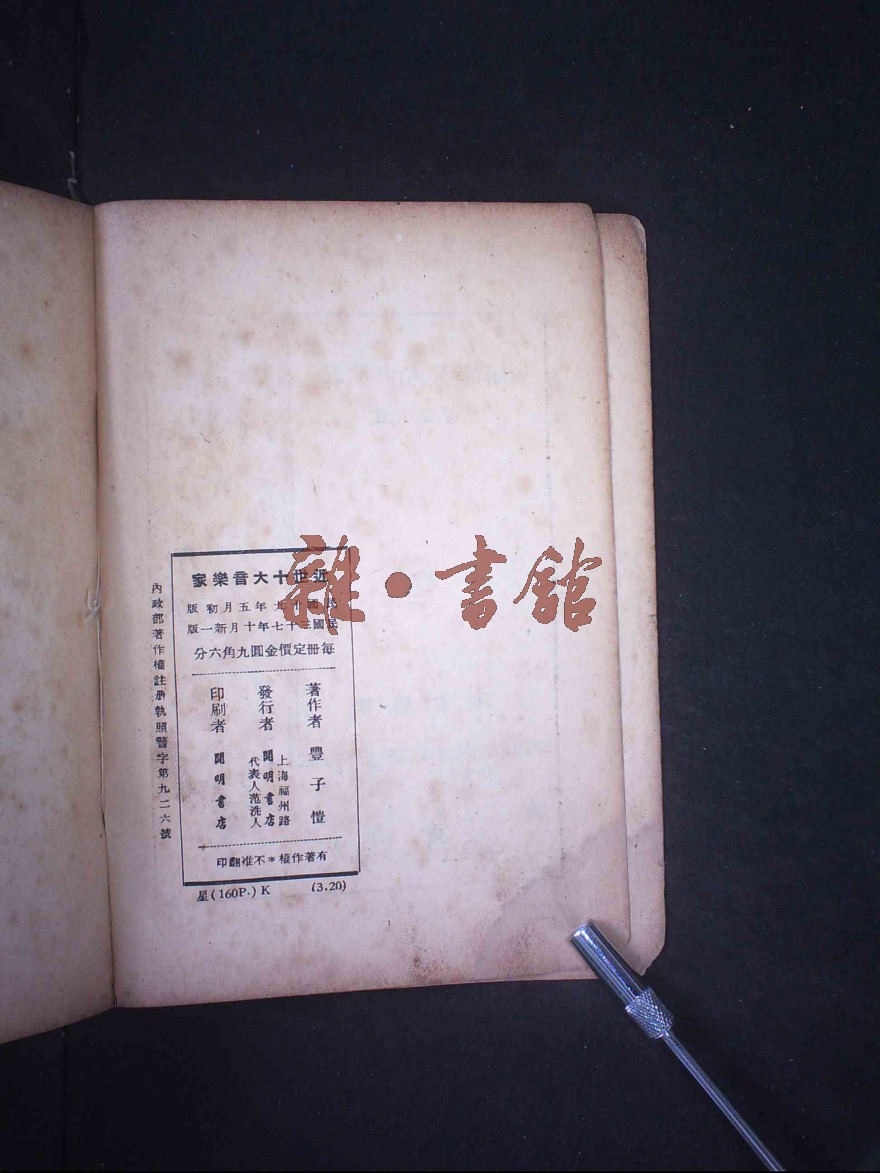 近世十大音樂家
民國十九年五月初版
民國三十七年十月新一版
每冊定價金圓九角六分
著作者 豐子愷
發行者 上海福州路 開明書店 代表人范洗人
印刷者 開明書店
有著作權＊不准翻印
星(160P.) K (3.20)
內政部著作權註册執照警字第九二六號
雜·書館